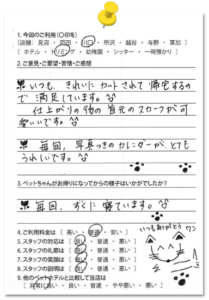 1. 今回のご利用(○印を)
[店舗: 見沼・戸田・川口・所沢・越谷・与野・草加]
[ホテル・トリミング・幼稚園・シッター・一時預かり]
2. ご意見・ご要望・苦情・ご感想
いつも、きれいにカットされて帰宅するので
満足しています。
仕上がりの後の首元のスカーフが可
愛いいです。
毎回、写真つきのカレンダーが、とても
うれしいです。
3. ペットちゃんがお帰りになってからの様子はいかがでしたか?
毎回、すぐに寝ています。
4. ご利用料金は [高い・普通・安い]
5. スタッフの対応は [良い・普通・悪い]
6. スタッフの礼節は [良い・普通・悪い]
7. スタッフの笑顔は [良い・普通・悪い]
8. スタッフの説明は [良い・普通・悪い]
9. 他のペットホテルと比較して当店は
[非常に良い・良い・普通・やや悪い・悪い]
いつもありがとうワン